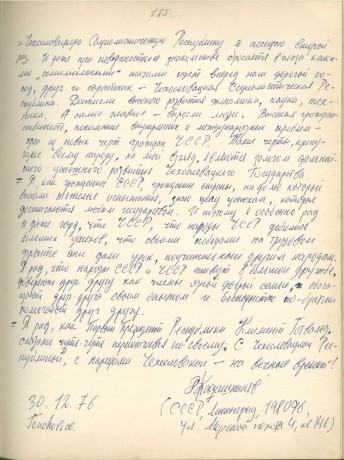 185.
Чехословацкую Социалистическую Республику я посещаю второй
раз. И даже при поверхностном знакомстве бросается в глаза каки-
ми "семимильными" шагами идет вперед наш дорогой со-
сед, друг и соратник - Чехословацкая Социалистическая Рес-
публика. Достигли высокого развития экономика, наука, тех-
ника. А самое главное - выросли люди. Высокая граждан-
ственность, понимание внутренних и международных проблем -
одна из новых черт граждан ЧССР. Такие черты, прису-
щие всему народу, на мой взгляд, являются залогом дальней-
шего успешного развития Чехословацкого Государства.
- Я, как гражданин СССР, гражданин страны, на долю которой
выпали тяжелые испытания, знаю цену успехам, которые
достигаются любым государством. И поэтому я особенно рад
и даже горд, что ЧССР, что народы ЧССР добились
больших успехов, что своими победами на трудовом
фронте они дали урок, поучительный другим народам.
Я рад, что народы СССР и ЧССР живут в большой дружбе,
доверяют друг другу как члены одной доброй семьи, обога-
щают друг друга своим опытом и бескорыстно по-братски
помогают друг другу.
- Я рад, как Первый президент Республики Клемент Готвальд,
сказать чуть-чуть перефразировав по-своему: С Чехословацкой Рес-
публикой, с народами Чехословакии - на вечные времена!
30.12.76
(СССР, Ленинград, 198096,
ул. Морской пехоты 4, кв 146)